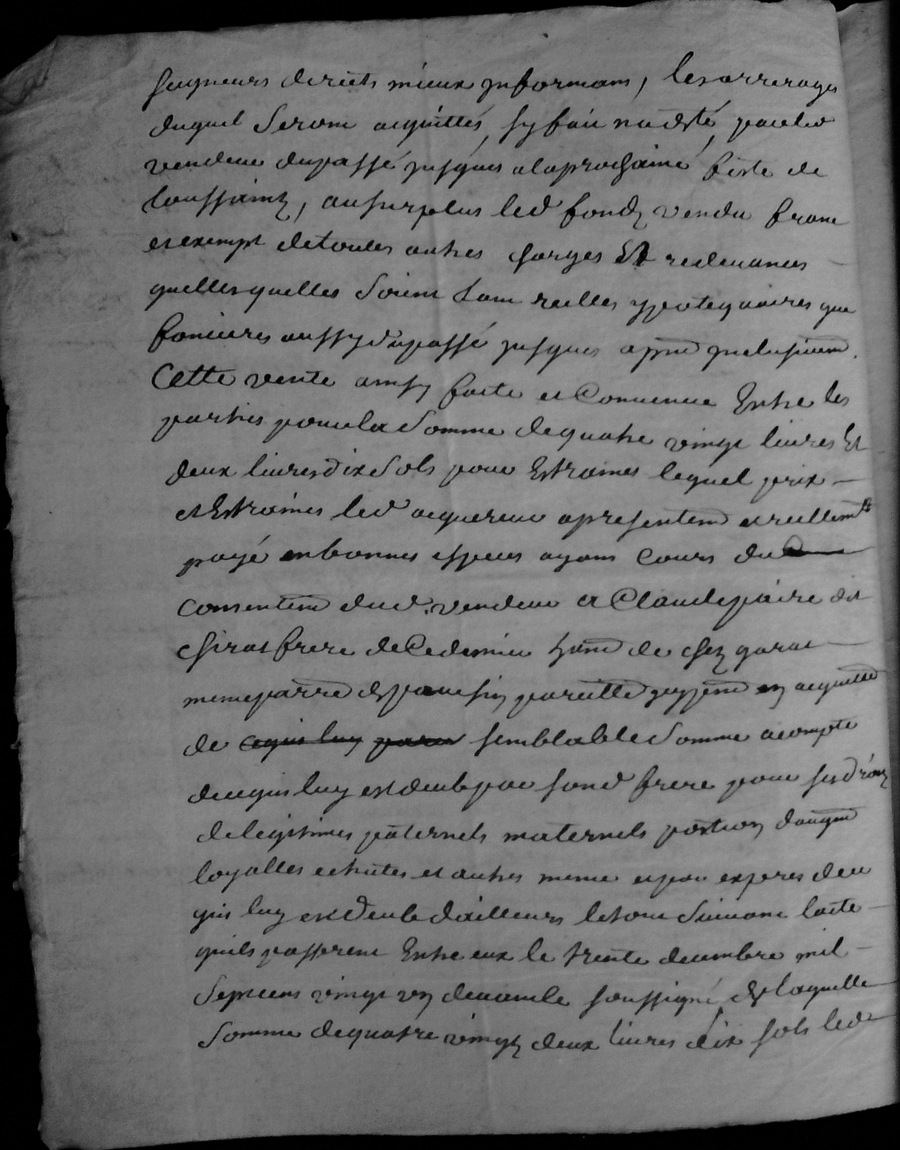 seigneurs directs mieux informans, les arrerages
duquel seront acquittés, sy fait na esté, par led
vendeur du passé jusques a la prochaine feste de
toussaintz, au surplus led fondz vendu franc
et exempt de toutes autres charges Et redevances
quelles quelles soient tant reelles ypotequaires que
foncieres aussy du passé jusques a pnt inclusivemt.
Cette vente ainsy faite et Convenue Entre les
parties pour la somme de quatre vingt livres Et
deux livres dix sols pour Estraines lequel prix
et Estraines led acquereur a presentemt et reellemt
payé en bonnes especes ayans Cours du
consentemt dud. vendeur a Claude paire dit
chirat frere de Ce dernier habt de chez garat
meme parre pareille en acquittemt
de ce qui luy semblable somme a compte
de ce qui luy est deub par sond frere pour ses droitz
de legitimes paternels maternels portion d'augmt
loyalles echutes et autres meme et par expres de ce
qui luy est deub d'ailleurs le tout suivant l'acte
quils passerent Entre eux le trente decembre mil
sept cens vingt un devant le soussigné de laquelle
somme de quatre vingtz deux livres dix sols led